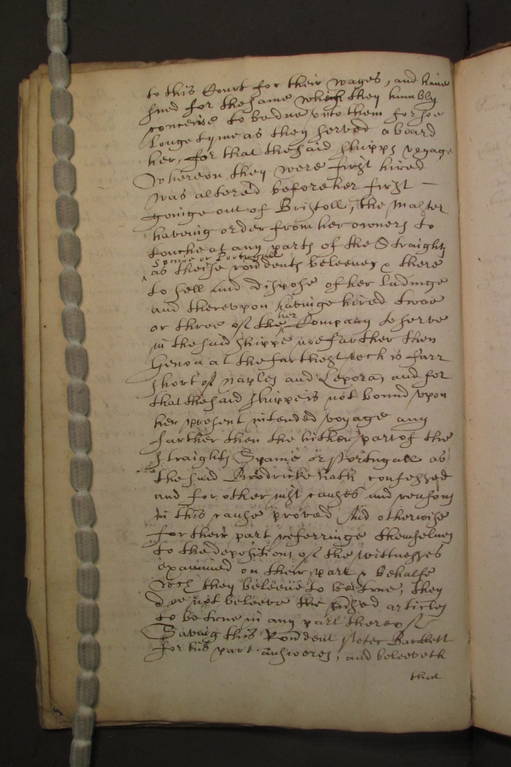 to this Court for their wages, and have
sued for the same which they humbly
conceive to be due unto them for soe
longe tyme as they served aboard
her, for that the said shipps voyage
whereon they were first hired
was altered before her first
goinge out of Bristoll, the Master
havinge order from her owners to
touche at any parts of the Straights
Spaine or Portugall
as theise rondents beleeve, & there
to sell and dispose of her ladinge
and thereupon havinge hired twoe
or three of the Company to serve
her
in the said shippe noe further then
Genoa at the farthest which is farr
short of Naples and and for
that the said shippe is not bound upon
her present intended voyage any
further then the hither part of the
Straights Spaine or Portugall as
the said Brodricke hath confessed
and for other just causes and reasons
in this cause proved And otherwise
for their part referringe themselves
to the depositions of the wittnesses
examined on their part & behalfe
wch they beleeve to be true, they
doe not beleeve the articles
to be true in any part thereof
Saving this Rondent Peter Bartlett
for his part answeres, and beleeveth
that